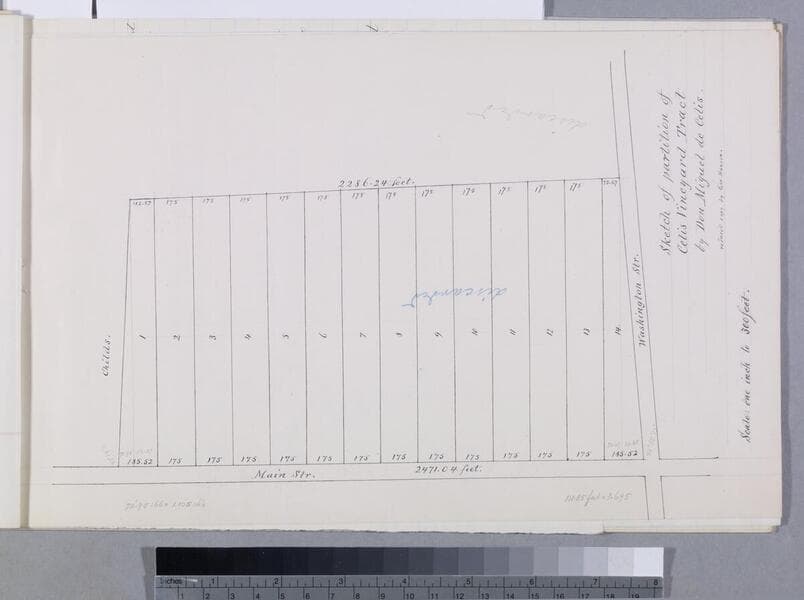 discarded
2286.24 feet.
175 175 175 175 175 175 175 175 175 175 175 175
discarded
Childs.
1 2 3 4 5 6 7 8 9 10 11 12 13 14
Washington Str.
185.52 175 175 175 175 175 175 175 175 175 175 175 175 185.52
Main Str.
2471.04 feet.
Sketch of partition of
Celis Vineyard Tract
by Don Miguel de Celis.
Scale: one inch to 300 feet.
Inches 1 2 3 4 5 6 7 8
1 2 3 4 5 6 7 8 9 10 11 12 13 14 15 16 17 18 19